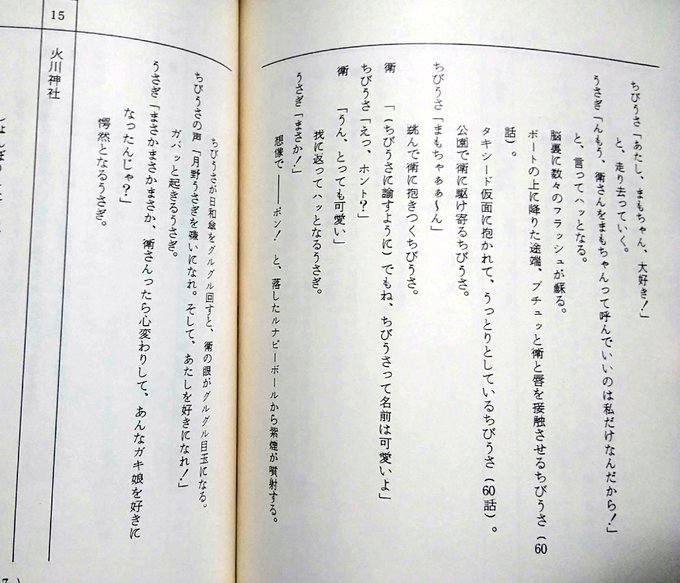 ちびうさ「あたし、まもちゃん、大好き！」
と、走り去っていく。
うさぎ「んもう、衛さんをまもちゃんって呼んでいいのは私だけなんだから！」
と、言ってハッとなる。
脳裏に数々のフラッシュが蘇る。
ボートの上に降りた途端、ブチュッと衛と唇を接触させるちびうさ（60
話）。
タキシード仮面に抱かれて、うっとりとしているちびうさ（60話）。
公園で衛に駆け寄るちびうさ。
ちびうさ「まもちゃぁぁ〜ん」
跳んで衛に抱きつくちびうさ。
衛　「（ちびうさに諭すように）でもね、ちびうさって名前は可愛いよ」
ちびうさ「えっ、ホント？」
衛　「うん、とっても可愛い」
我に返ってハッとなるうさぎ。
うさぎ「まさか！」
想像で――ボン！　と、落したルナピーボールから紫煙が噴射する。
ちびうさが日和傘をグルグル回すと、衛の眼がグルグル目玉になる。
ちびうさの声「月野うさぎを嫌いになれ。そして、あたしを好きになれ！」
ガバッと起きるうさぎ。
うさぎ「まさかまさかまさか、衛さんったら心変わりして、あんなガキ娘を好きに
なったんじゃ？」
愕然となるうさぎ。
15
火川神社